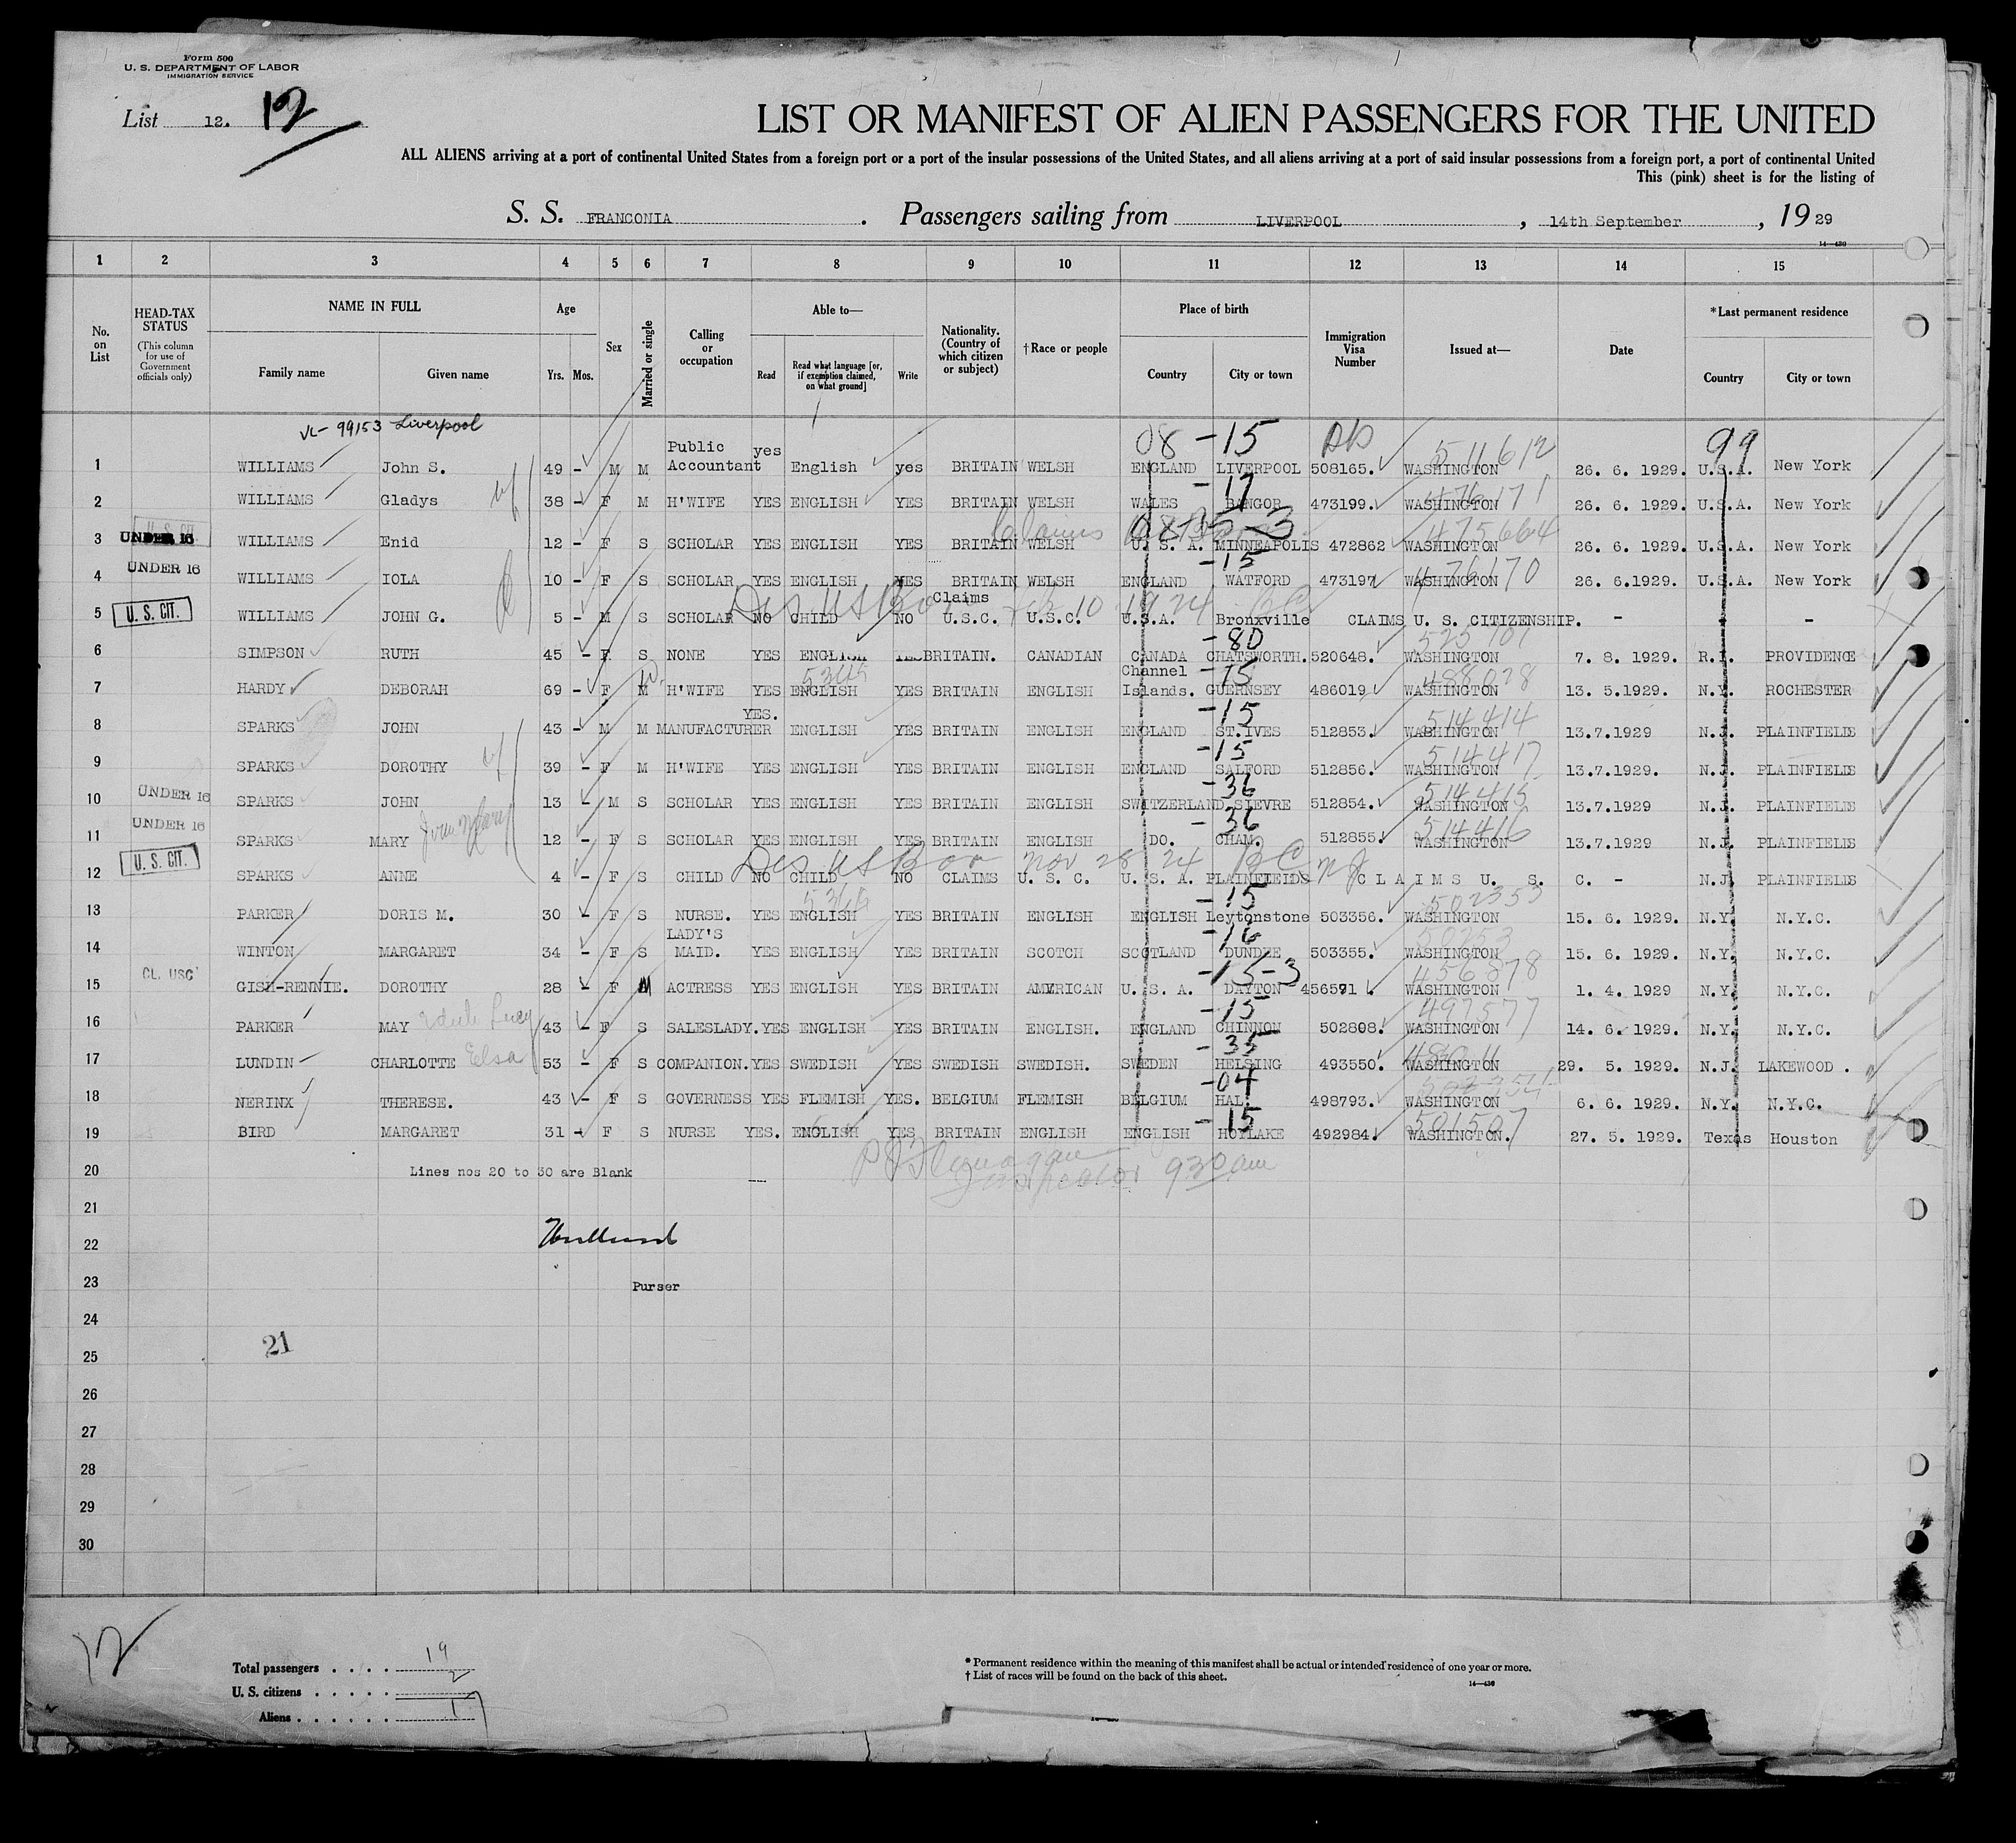 Form 500
U. S. DEPARTMENT OF LABOR
IMMIGRATION SERVICE
List 12. 12
LIST OR MANIFEST OF ALIEN PASSENGERS FOR THE UNITED
ALL ALIENS arriving at a port of continental United States from a foreign port or a port of the insular possessions of the United States, and all aliens arriving at a port of said insular possessions from a foreign port, a port of continental United
This (pink) sheet is for the listing of
S. S. FRANCONIA . Passengers sailing from LIVERPOOL , 14th September , 19 29
14—430
1 2 3 4 5 6 7 8 9 10 11 12 13 14 15
No. on List
HEAD-TAX STATUS (This column for use of Government officials only)
NAME IN FULL Family name Given name
Age Yrs. Mos.
Sex
Married or single
Calling or occupation
Able to— Read Read what language [or, if exemption claimed, on what ground] Write
Nationality. (Country of which citizen or subject)
†Race or people
Place of birth Country City or town
Immigration Visa Number
Issued at—
Date
*Last permanent residence Country City or town
99153 Liverpool 08 -15 99
1 WILLIAMS John S. 49 - M M Public Accountant yes English yes BRITAIN WELSH ENGLAND LIVERPOOL 508165. WASHINGTON 511612 26. 6. 1929. U.S.A. New York
-17
2 WILLIAMS Gladys 38 - F M H'WIFE YES ENGLISH YES BRITAIN WELSH WALES BANGOR 473199. WASHINGTON 476171 26. 6. 1929. U.S.A. New York
U. S. CIT. Claims 08-15-3
3 UNDER 16 WILLIAMS Enid 12 - F S SCHOLAR YES ENGLISH YES BRITAIN WELSH U. S. A. MINNEAPOLIS 472862 WASHINGTON 475664 26. 6. 1929. U.S.A. New York
UNDER 16 -15
4 WILLIAMS IOLA 10 - F S SCHOLAR YES ENGLISH YES BRITAIN WELSH ENGLAND WATFORD 473197 WASHINGTON 476170 26. 6.1929. U.S.A. New York
Claims 10 1924
5 U. S. CIT. WILLIAMS JOHN G. 5 - M S SCHOLAR NO CHILD NO U.S.C. U.S.C. U.S.A. Bronxville CLAIMS U. S. CITIZENSHIP. - - -
-80
6 SIMPSON RUTH 45 - F S NONE YES ENGLISH YES BRITAIN. CANADIAN CANADA CHATSWORTH. 520648. WASHINGTON 7. 8. 1929. R.I. PROVIDENCE
-15
7 HARDY DEBORAH 69 - F M H'WIFE YES ENGLISH YES BRITAIN ENGLISH Channel Islands. GUERNSEY 486019 WASHINGTON 13. 5.1929. N.Y. ROCHESTER
-15
8 SPARKS JOHN 43 - M M MANUFACTURER YES. ENGLISH YES BRITAIN ENGLISH ENGLAND ST.IVES 512853. WASHINGTON 514414 13.7.1929 N.J. PLAINFIELDS
-15
9 SPARKS DOROTHY 39 - F M H'WIFE YES ENGLISH YES BRITAIN ENGLISH ENGLAND SALFORD 512856. WASHINGTON 514417 13.7.1929. N.J. PLAINFIELDS
-36
10 UNDER 16 SPARKS JOHN 13 - M S SCHOLAR YES ENGLISH YES BRITAIN ENGLISH SWITZERLAND SIEVRE 512854. WASHINGTON 514415 13.7.1929 N.J. PLAINFIELDS
-36
11 UNDER 16 SPARKS MARY 12 - F S SCHOLAR YES ENGLISH YES BRITAIN ENGLISH DO. CHAM. 512855. WASHINGTON 514416 13.7.1929 N.J. PLAINFIELDS
Nov 28 24 BC NJ
12 U. S. CIT. SPARKS ANNE 4 - F S CHILD NO CHILD NO CLAIMS U. S. C. U. S. A. PLAINFIELDS CLAIMS U. S. C. - N.J. PLAINFIELDS
-15
13 PARKER DORIS M. 30 - F S NURSE. YES ENGLISH YES BRITAIN ENGLISH ENGLISH Leytonstone 503356. WASHINGTON 502353 15. 6. 1929. N.Y. N.Y.C.
-16
14 WINTON MARGARET 34 - F S LADY'S MAID. YES ENGLISH YES BRITAIN SCOTCH SCOTLAND DUNDEE 503355. WASHINGTON 15. 6. 1929. N.Y. N.Y.C.
-15-3
15 CL. USC GISH-RENNIE. DOROTHY 28 - F M ACTRESS YES ENGLISH YES BRITAIN AMERICAN U. S. A. DAYTON 456591 WASHINGTON 456878 1. 4. 1929 N.Y. N.Y.C.
-15
16 PARKER MAY Lucy 43 - F S SALESLADY. YES ENGLISH YES BRITAIN ENGLISH. ENGLAND CHINNON 502808. WASHINGTON 497577 14. 6. 1929. N.Y. N.Y.C.
-35
17 LUNDIN CHARLOTTE Elsa 53 - F S COMPANION. YES SWEDISH YES SWEDISH SWEDISH. SWEDEN HELSING 493550. WASHINGTON 29. 5. 1929. N.J. LAKEWOOD .
-04
18 NERINX THERESE. 43 - F S GOVERNESS YES FLEMISH YES. BELGIUM FLEMISH BELGIUM HAL. 498793. WASHINGTON 6. 6. 1929. N.Y. N.Y.C.
-15
19 BIRD MARGARET 31 - F S NURSE YES. ENGLISH YES BRITAIN ENGLISH ENGLISH HOYLAKE 492984. WASHINGTON. 501507 27. 5. 1929. Texas Houston
20 Lines nos 20 to 30 are Blank
Inspector 930 am
21
22
23 Purser
24
21
25
26
27
28
29
30
12
Total passengers . . . . 19
U. S. citizens . . . . . 2
Aliens . . . . . . 17
* Permanent residence within the meaning of this manifest shall be actual or intended residence of one year or more.
† List of races will be found on the back of this sheet.
14—430